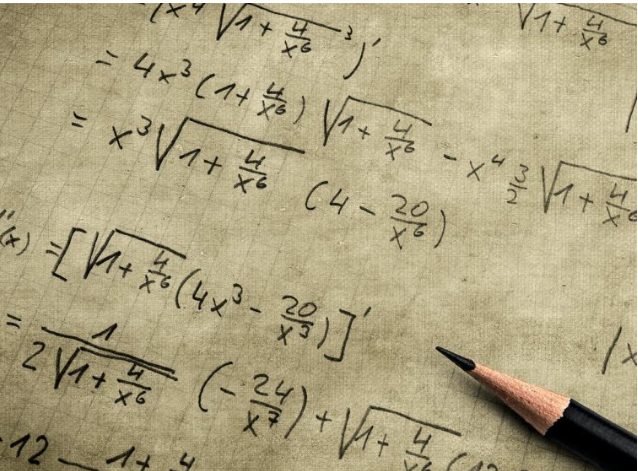 (x⁴ √(1 + 4/x⁶)³)' √(1 + 4/x⁶)
= 4x³ (1 + 4/x⁶) √(1 + 4/x⁶) - x⁴ 3/2 √(1 + 4/x⁶)
= x³ √(1 + 4/x⁶) (4 - 20/x⁶)
''(x) = [√(1 + 4/x⁶) (4x³ - 20/x³)]'
= 1/(2√(1 + 4/x⁶)) (-24/x⁷) + √(1 + 4/x⁶) (12
12 1 + 4